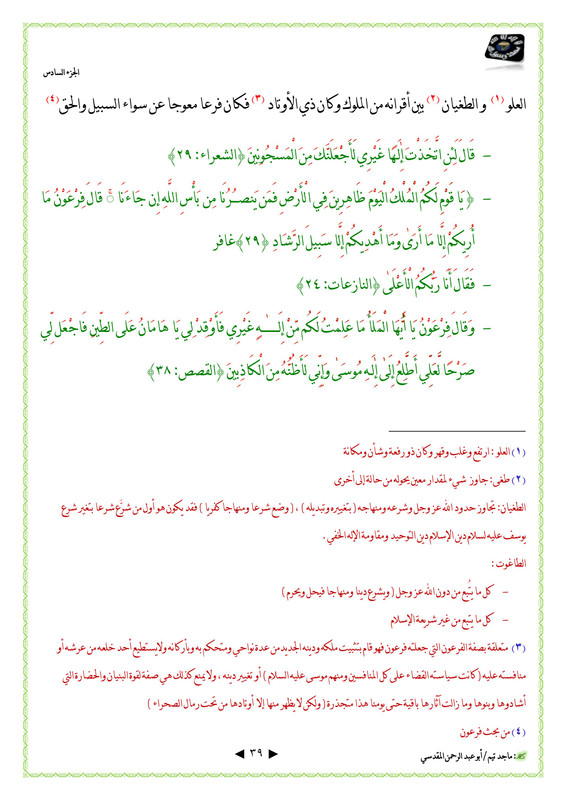 الجزء السادس
العلو (١) و الطغيان (٢) بين أقرانه من الملوك وكان ذي الأوتاد (٣) فكان فرعا معوجا عن سواء السبيل والحق (٤)
– قَالَ لَئِنِ اتَّخَذْتَ إِلَٰهًا غَيْرِي لَأَجْعَلَنَّكَ مِنَ الْمَسْجُونِينَ ﴿الشعراء: ٢٩﴾
– ﴿يَا قَوْمِ لَكُمُ الْمُلْكُ الْيَوْمَ ظَاهِرِينَ فِي الْأَرْضِ فَمَن يَنصُرُنَا مِن بَأْسِ اللَّهِ إِن جَاءَنَا ۚ قَالَ فِرْعَوْنُ مَا
أُرِيكُمْ إِلَّا مَا أَرَىٰ وَمَا أَهْدِيكُمْ إِلَّا سَبِيلَ الرَّشَادِ ﴿٢٩﴾ غافر
– فَقَالَ أَنَا رَبُّكُمُ الْأَعْلَىٰ ﴿النازعات: ٢٤﴾
– وَقَالَ فِرْعَوْنُ يَا أَيُّهَا الْمَلَأُ مَا عَلِمْتُ لَكُم مِّنْ إِلَـٰهٍ غَيْرِي فَأَوْقِدْ لِي يَا هَامَانُ عَلَى الطِّينِ فَاجْعَل لِّي
صَرْحًا لَّعَلِّي أَطَّلِعُ إِلَىٰ إِلَٰهِ مُوسَىٰ وَإِنِّي لَأَظُنُّهُ مِنَ الْكَاذِبِينَ ﴿القصص: ٣٨﴾
(١) العلو : ارتفع وغلب وقهر وكان ذو رفعة وشأن ومكانة
(٢) طغى: جاوز شيء لمقدار معين يحوله من حالة إلى أخرى
الطغيان: تجاوز حدود الله عز وجل وشرعه ومنهاجه ( بتغييره وتبديله ) ، ( وضع شرعا ومنهاجا كفريا ) فقد يكون هو أول من شرَّع شرعا بتغير شرع
يوسف عليه لسلام دين الإسلام دين التوحيد ومقاومة الإله الخفي .
الطاغوت :
– كل ما يتَّبع من دون الله عز وجل ( ويشرع دينا ومنهاجا فيحل ويحرم )
– كل ما يتَّبع من غير شريعة الإسلام
(٣) متعلقة بصفة الفرعون التي جعلته فرعون فهو قام بتثبيت ملكه ودينه الجديد من عدة نواحي ومتحكم به وبأركانه ولا يستطيع أحد خلعه من عرشه أو
منافسته عليه ( كانت سياسته القضاء على كل المنافسين ومنهم موسى عليه السلام ) أو تغيير دينه ، ولا يمنع كذلك هي صفة لقوة البنيان والحضارة التي
أشادوها وبنوها وما زالت آثارها باقية حتى يومنا هذا متجذرة ( ولكن لا يظهر منها إلا أوتادها من تحت رمال الصحراء )
(٤) من بحث فرعون
: ماجد تيم / أبو عبد الرحمن المقدسي
◀ ٣٩ ▶